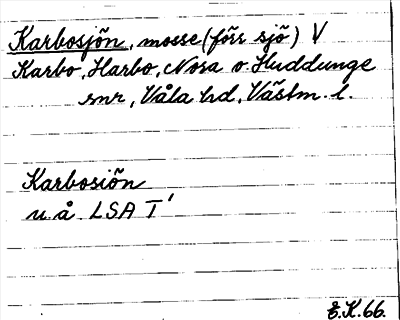 Karbosjön, mosse (förr sjö) V
Karbo, Harbo, Nora o. Huddunge
snr, Våla hd, Västm. l.
Karbosiön
u. å. LSA I'
E.K. 66.